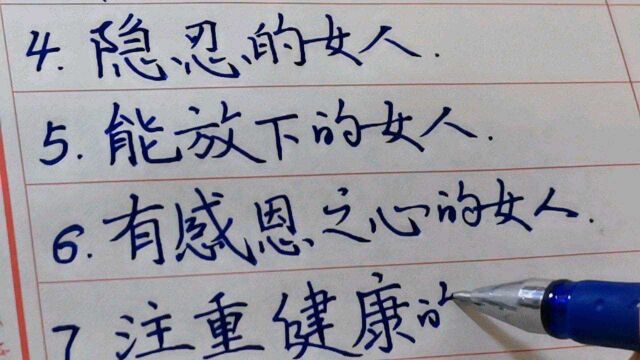 4.隐忍的女人.
5.能放下的女人.
6.有感恩之心的女人.
7注重健康的